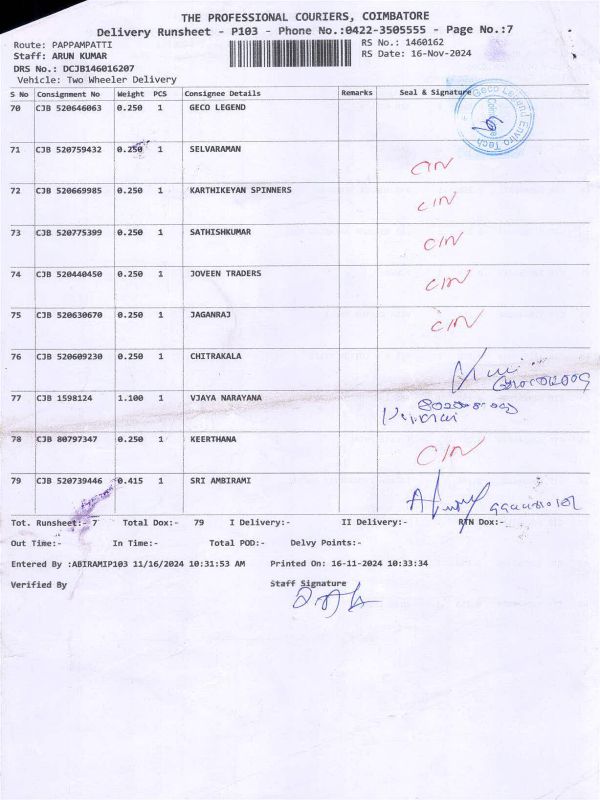 THE PROFESSIONAL COURIERS, COIMBATORE
Delivery Runsheet - P103 - Phone No.:0422-3505555 - Page No.:7
Route: PAPPAMPATTI RS No.: 1460162
Staff: ARUN KUMAR RS Date: 16-Nov-2024
DRS No.: DCJB146016207
Vehicle: Two Wheeler Delivery
S No Consignment No Weight PCS Consignee Details Remarks Seal & Signature
70 CJB 520646063 0.250 1 GECO LEGEND
Geco Legend Enviro Tech
71 CJB 520759432 0.250 1 SELVARAMAN CIN
72 CJB 520669985 0.250 1 KARTHIKEYAN SPINNERS CIN
73 CJB 520775399 0.250 1 SATHISHKUMAR CIN
74 CJB 520440450 0.250 1 JOVEEN TRADERS CIN
75 CJB 520630670 0.250 1 JAGANRAJ CIN
76 CJB 520609230 0.250 1 CHITRAKALA
77 CJB 1598124 1.100 1 VJAYA NARAYANA
78 CJB 80797347 0.250 1 KEERTHANA CIN
79 CJB 520739446 0.415 1 SRI AMBIRAMI
Tot. Runsheet:- 7 Total Dox:- 79 I Delivery:- II Delivery:- RTN Dox:-
Out Time:- In Time:- Total POD:- Delvy Points:-
Entered By :ABIRAMIP103 11/16/2024 10:31:53 AM Printed On: 16-11-2024 10:33:34
Verified By Staff Signature